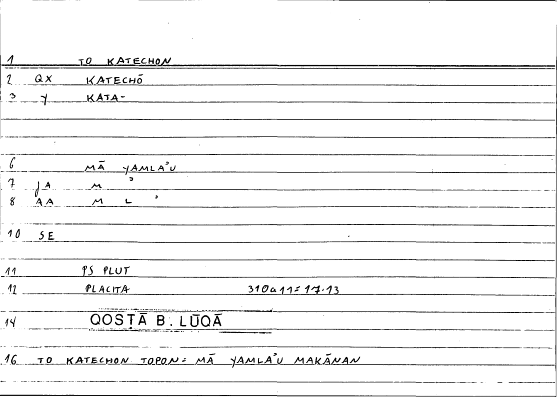 1 TO KATECHON
2 QX KATECHŌ
3 Y KATA-
6 MĀ YAMLAʾU
7 JA M ʾ
8 AA M L ʾ
10 SE
11 PS PLUT
12 PLACITA 310a11=17.13
14 QOSṬĀ B. LŪQĀ
16 TO KATECHON TOPON= MĀ YAMLAʾU MAKĀNAN